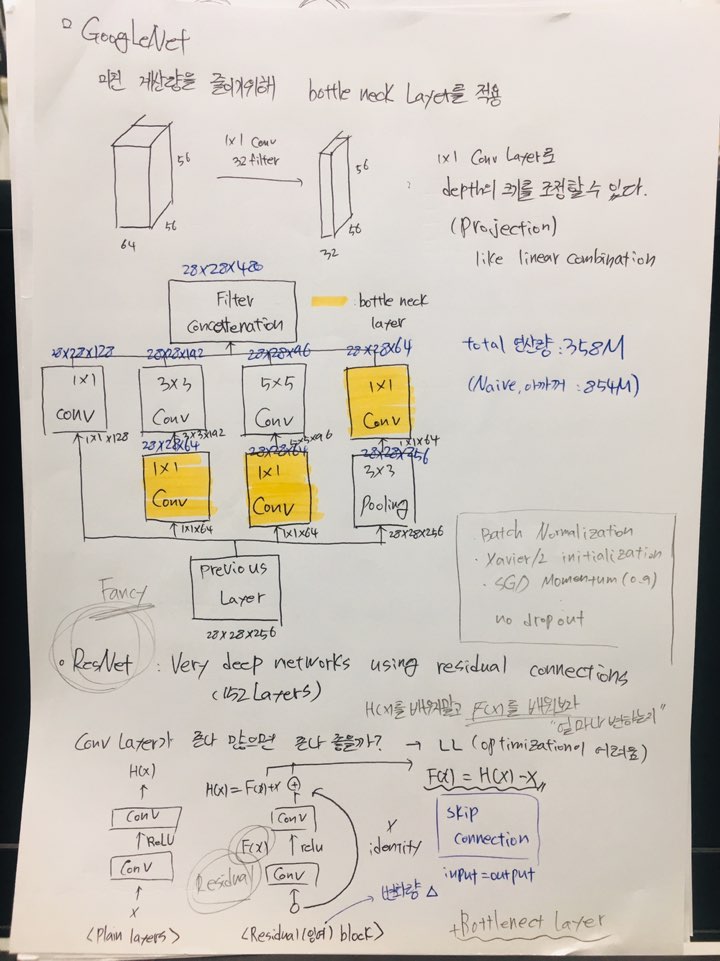 GoogleNet
미친 계산량을 줄이기위해 bottle neck Layer를 적용
1x1 Conv
32 filter
56
56
64
56
56
32
1x1 Conv Layer로
depth의 크기를 조정할 수 있다.
(Projection)
like linear combination
28x28x480
Filter
Concettenation
bottle neck
layer
total 연산량 : 358M
(Naive, 아까꺼 : 854M)
28x28x128
28x28x192
28x28x96
28x28x64
1x1
conv
3x3
Conv
5x5
Conv
1x1
Conv
1x1x128
3x3x192
5x5x96
1x1x64
28x28x64
28x28x64
28x28x256
1x1
Conv
1x1
Conv
3x3
Pooling
1x1x64
1x1x64
28x28x256
Previous
Layer
28x28x256
· Batch Normalization
· Xavier/2 initialization
· SGD Momentum (0.9)
no dropout
Fancy
• ResNet : Very deep networks using residual connections
(152 Layers)
H(x)를 배우지말고 F(x)를 배워보자
"얼마나 변하는가"
Conv Layer가 존나 많으면 존나 좋을까? → LL (optimization이 어려움)
H(x)
Conv
ReLU
Conv
X
<Plain layers>
H(x) = F(x)+x
Conv
F(x)
relu
Residual
Conv
X
identity
<Residual(잉여) block>
변화량 △
F(x) = H(x) - X
Skip
connection
input = output
+Bottlenect Layer